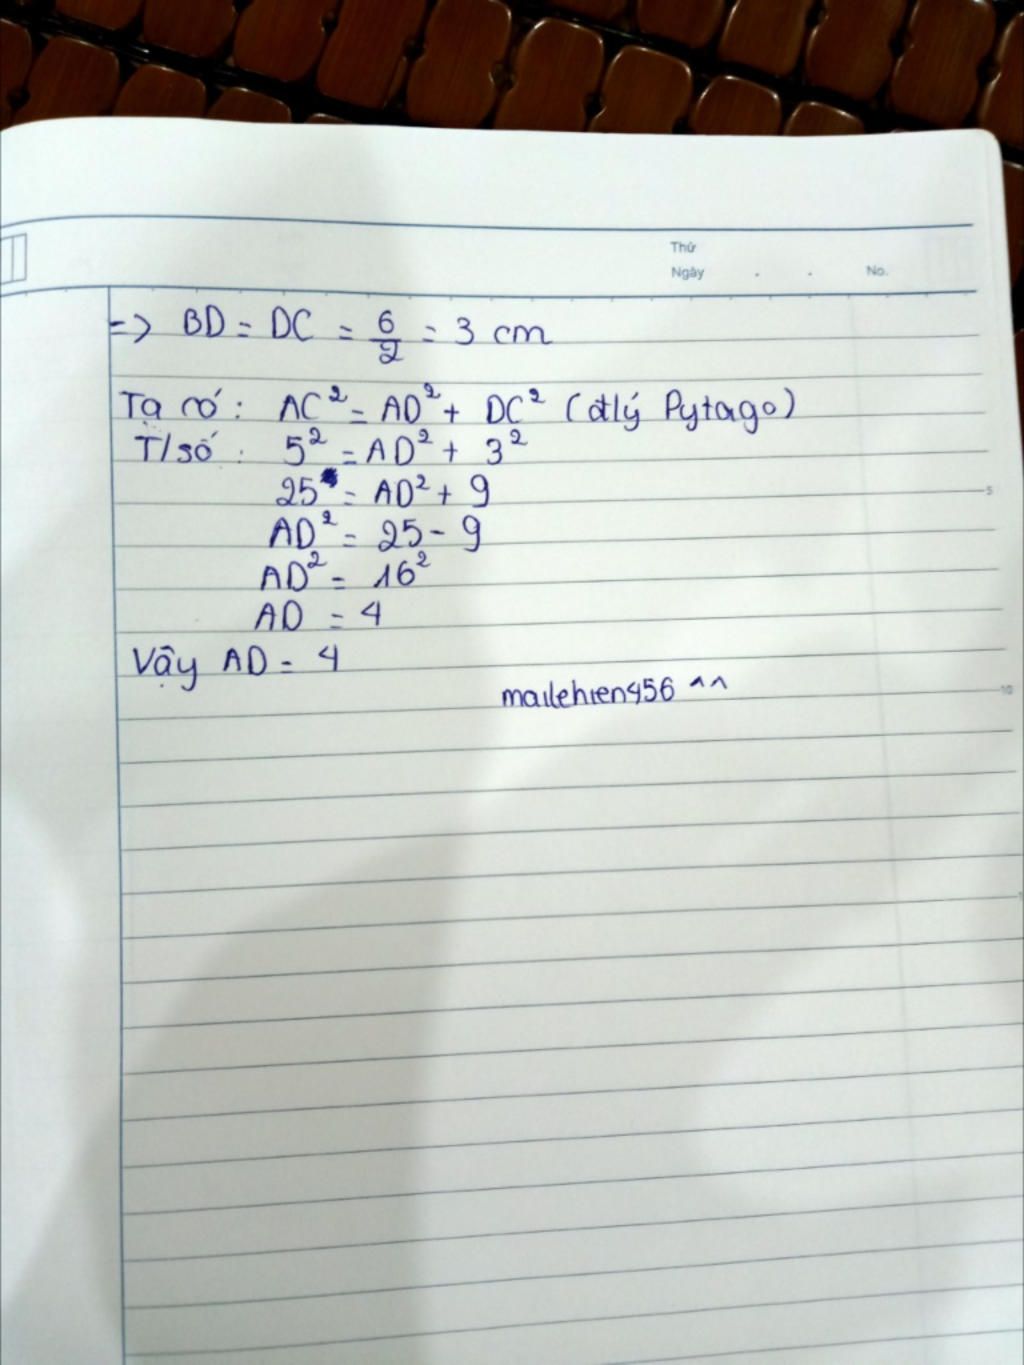 Thứ
Ngày . . No.
=> BD = DC = 6/2 = 3 cm
Ta có: AC² = AD² + DC² (đlý Pytago)
T/số: 5² = AD² + 3²
25 = AD² + 9
5
AD² = 25 - 9
AD² = 16²
AD = 4
Vậy AD = 4
mailehien456 ^^
10